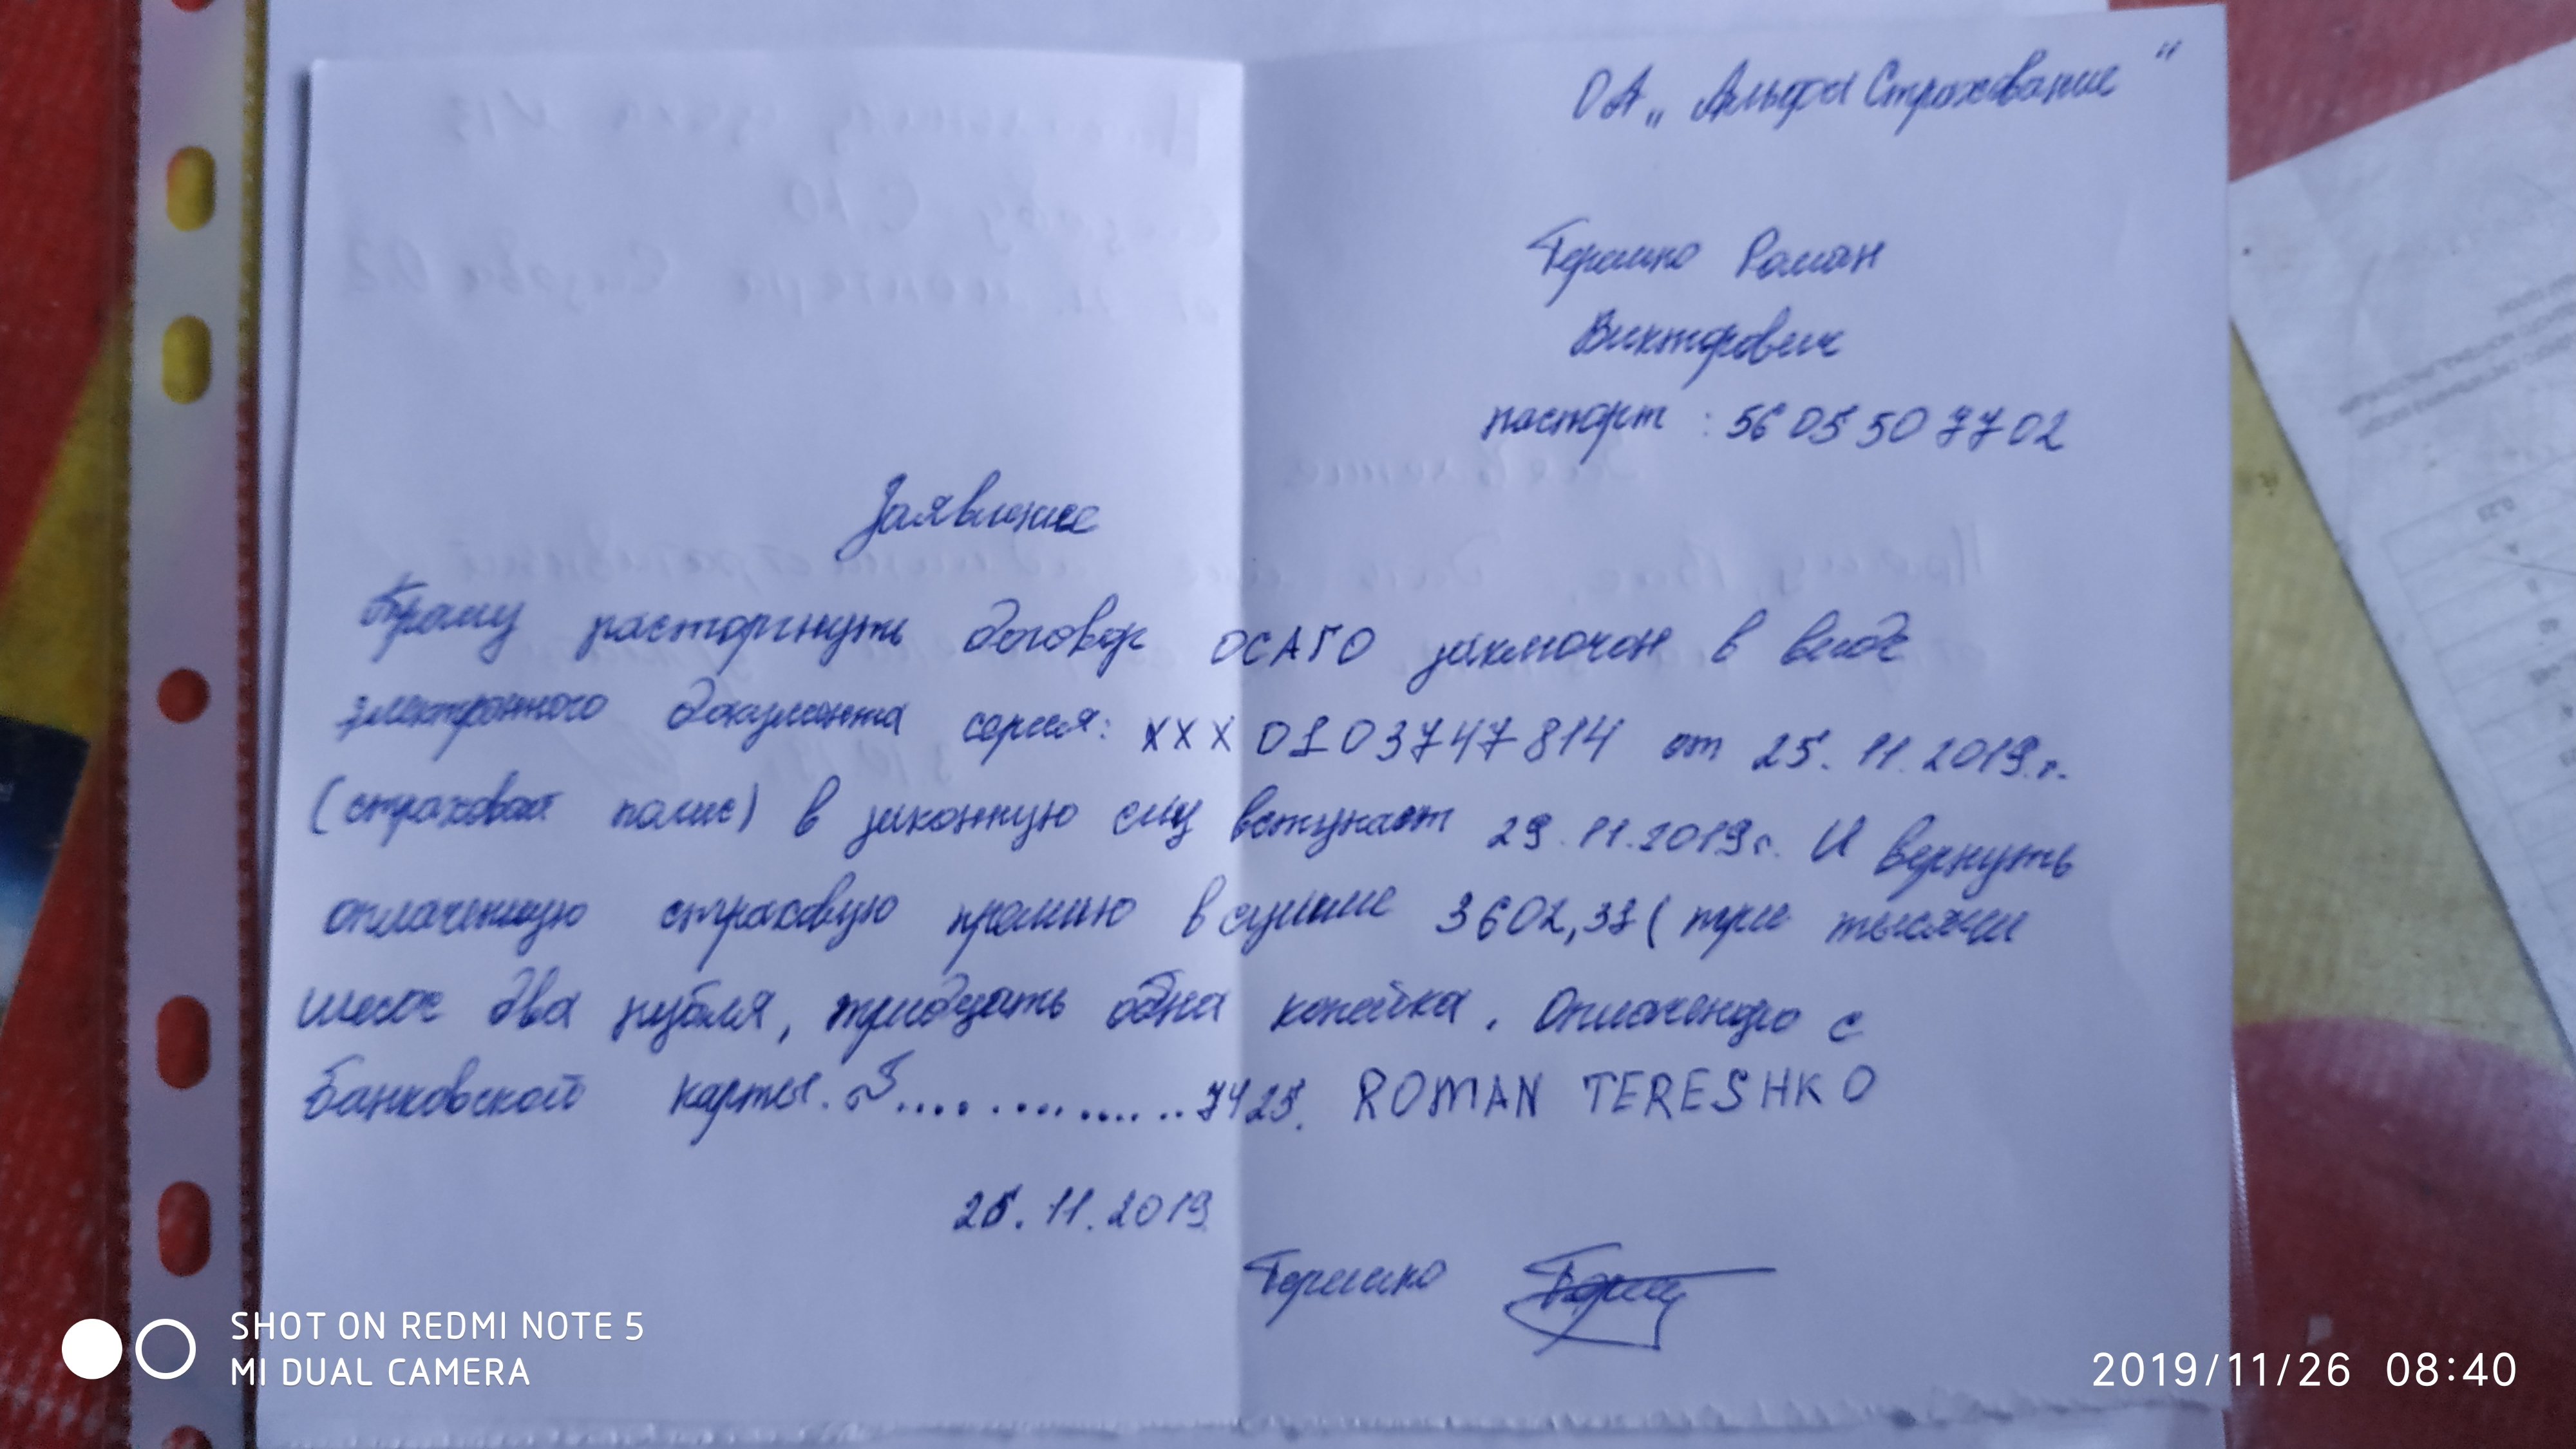 ОА „Альфа Страхование"
Терешко Роман
Викторович
паспорт: 56 05 50 7702
Заявление
Прошу расторгнуть договор ОСАГО заключен в виде
электронного документа серия: XXX 0103747814 от 25.11.2019.г.
(страховой полис) в законную силу вступает 29.11.2019г. И вернуть
оплаченную страховую премию в сумме 3602,31 (три тысячи
шесот два рубля, тридцать одна копейка. Оплаченную с
банковской карты. ................7425. ROMAN TERESHKO
25.11.2019
Терешко
SHOT ON REDMI NOTE 5
MI DUAL CAMERA
2019/11/26 08:40